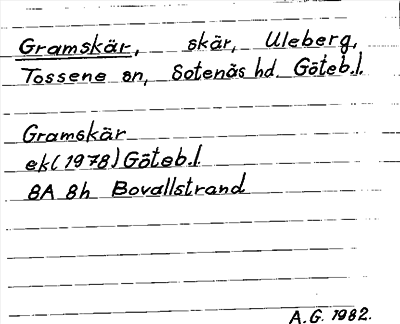 Gramskär, skär, Uleberg,
Tossene sn, Sotenäs hd. Göteb.l.
Gramskär
ek (1978) Göteb.l.
8A 8h Bovallstrand
A.G. 1982.